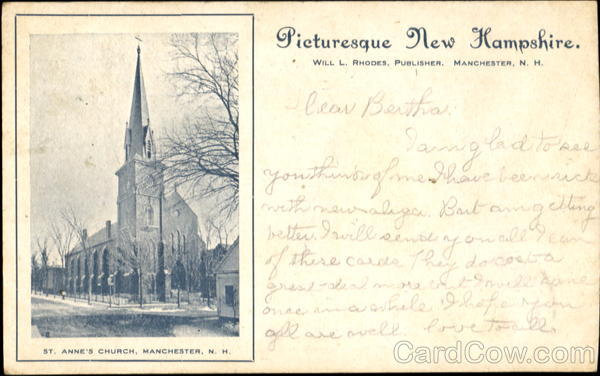 Picturesque New Hampshire.
WILL L. RHODES, PUBLISHER. MANCHESTER, N. H.
Dear Bertha.
I am glad to see
you think of me I have been sick
with newralaga. But am getting
better. I will send you all I can
of these cards They do cost a
great deal more but I will send
once in a while I hope you
all are well. love to all.
ST. ANNE'S CHURCH, MANCHESTER, N. H.
CardCow.com